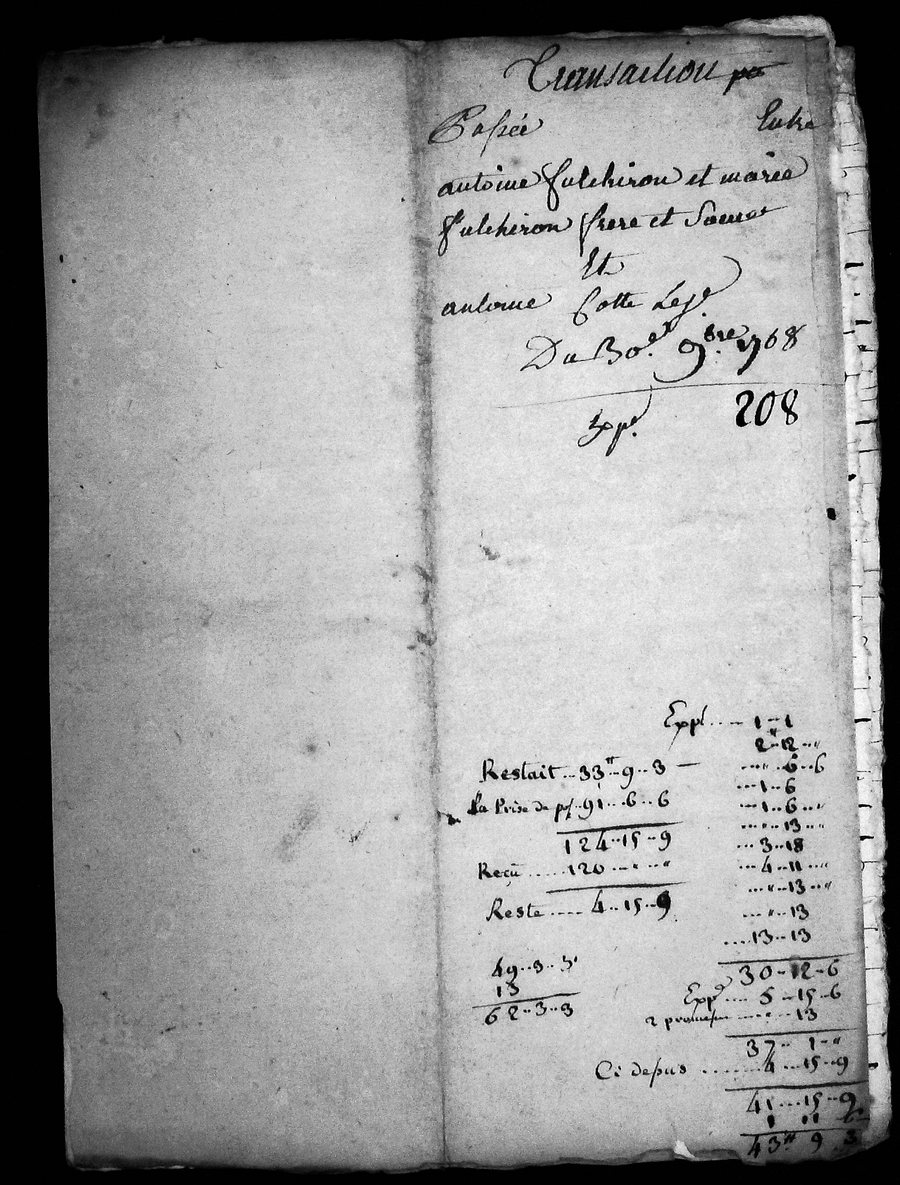 Transaction
Passée Entre
antoine fulchiron et marie
fulchiron frere et Soeur
Et
antoine Cotte
Du 30.e 9.bre 1768
208
Exp.e
Expl .... 1 - 1
2 - 12 - "
Restait .. 33 tt .. 9 .. 3 — ... " .. 6 .. 6
... 1 .. 6
La Prise de .. 91 .. 6 .. 6 ... 1 .. 6 .. "
... " .. 13 .. "
124 .. 15 .. 9 ... 3 .. 18
Reçu ..... 120 ... " .. " ... 4 .. 11 .. "
... " .. 13 .. "
Reste .... 4 .. 15 .. 9 ... " .. 13
.... 13 .. 13
49 .. 3 .. 3 30 - 12 - 6
13 Exp.e .... 5 .. 15 .. 6
62 .. 3 .. 3 2 .... " .. 13
37 .. 1 .. "
Ci depus ....... 4 ... 15 .. 9
41 ... 15 .. 9
1 11 6
43 tt 9 3